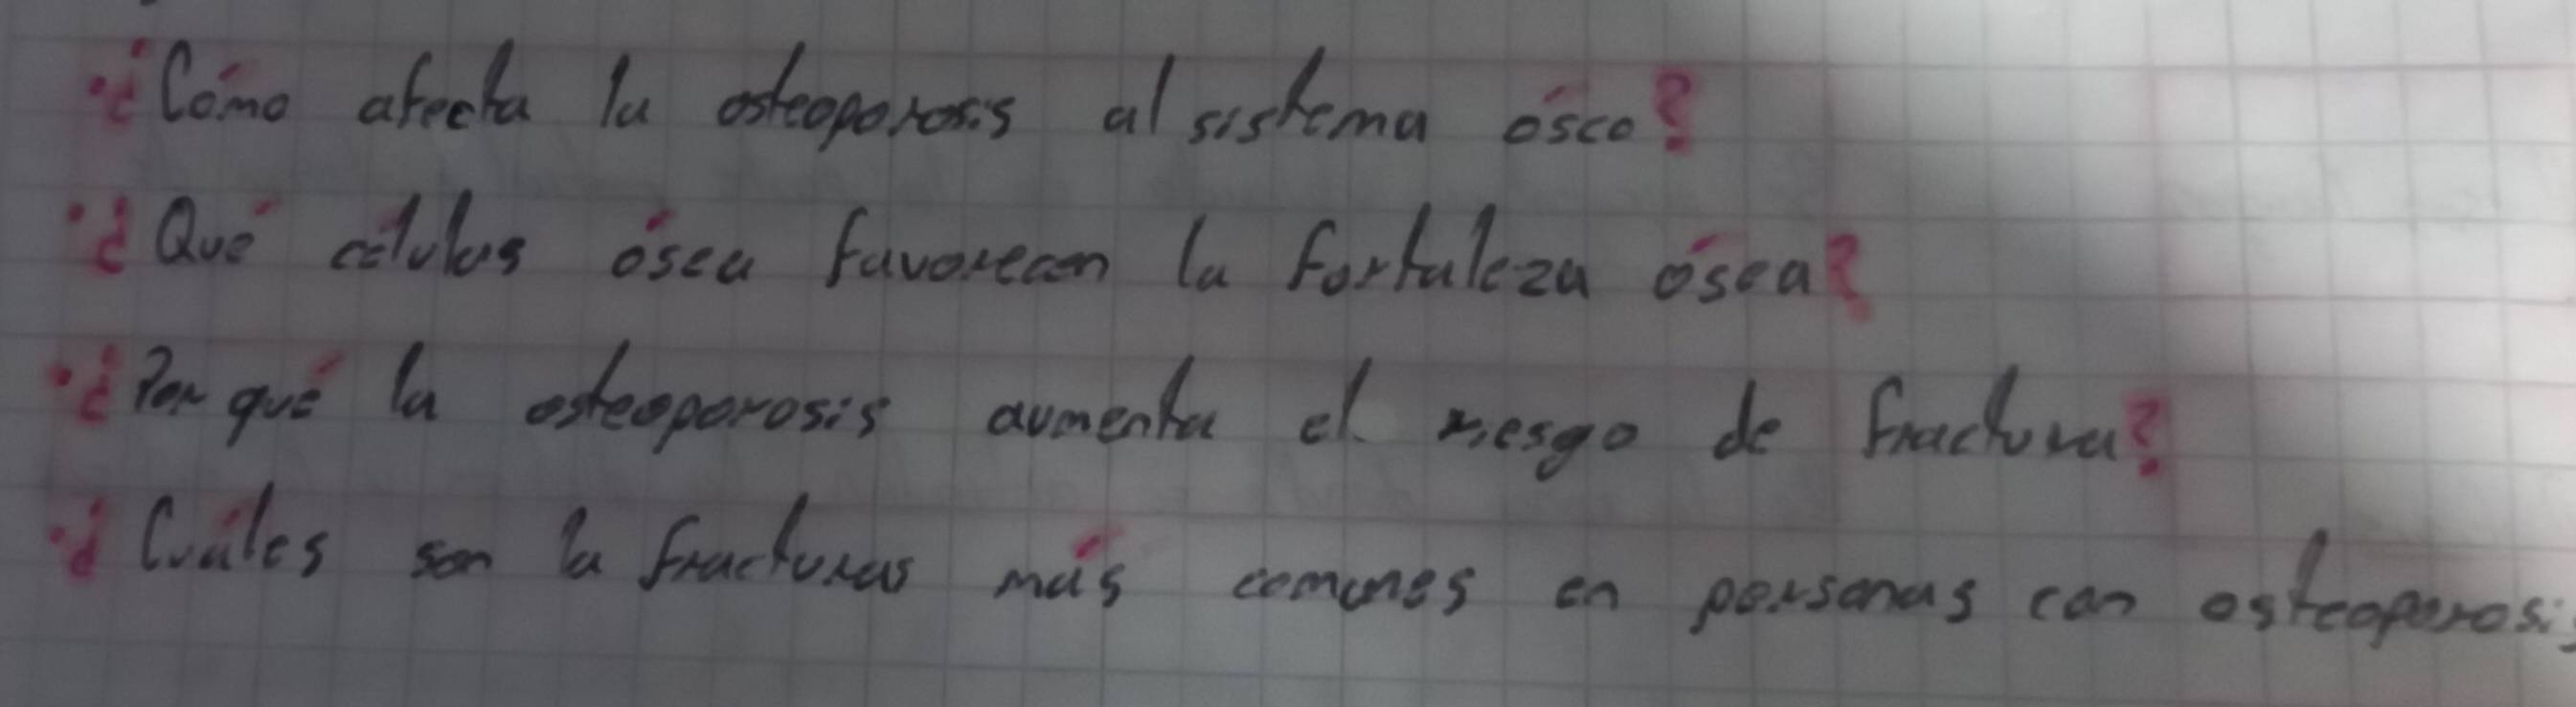 ·¿Cómo afecta la osteoporosis al sistema óseo?
·¿Qué células ósea favorecen la fortaleza ósea?
·¿Por qué la osteoporosis aumenta el riesgo de fractura?
·¿Cuáles son la fracturas más comunes en personas con osteoporosis